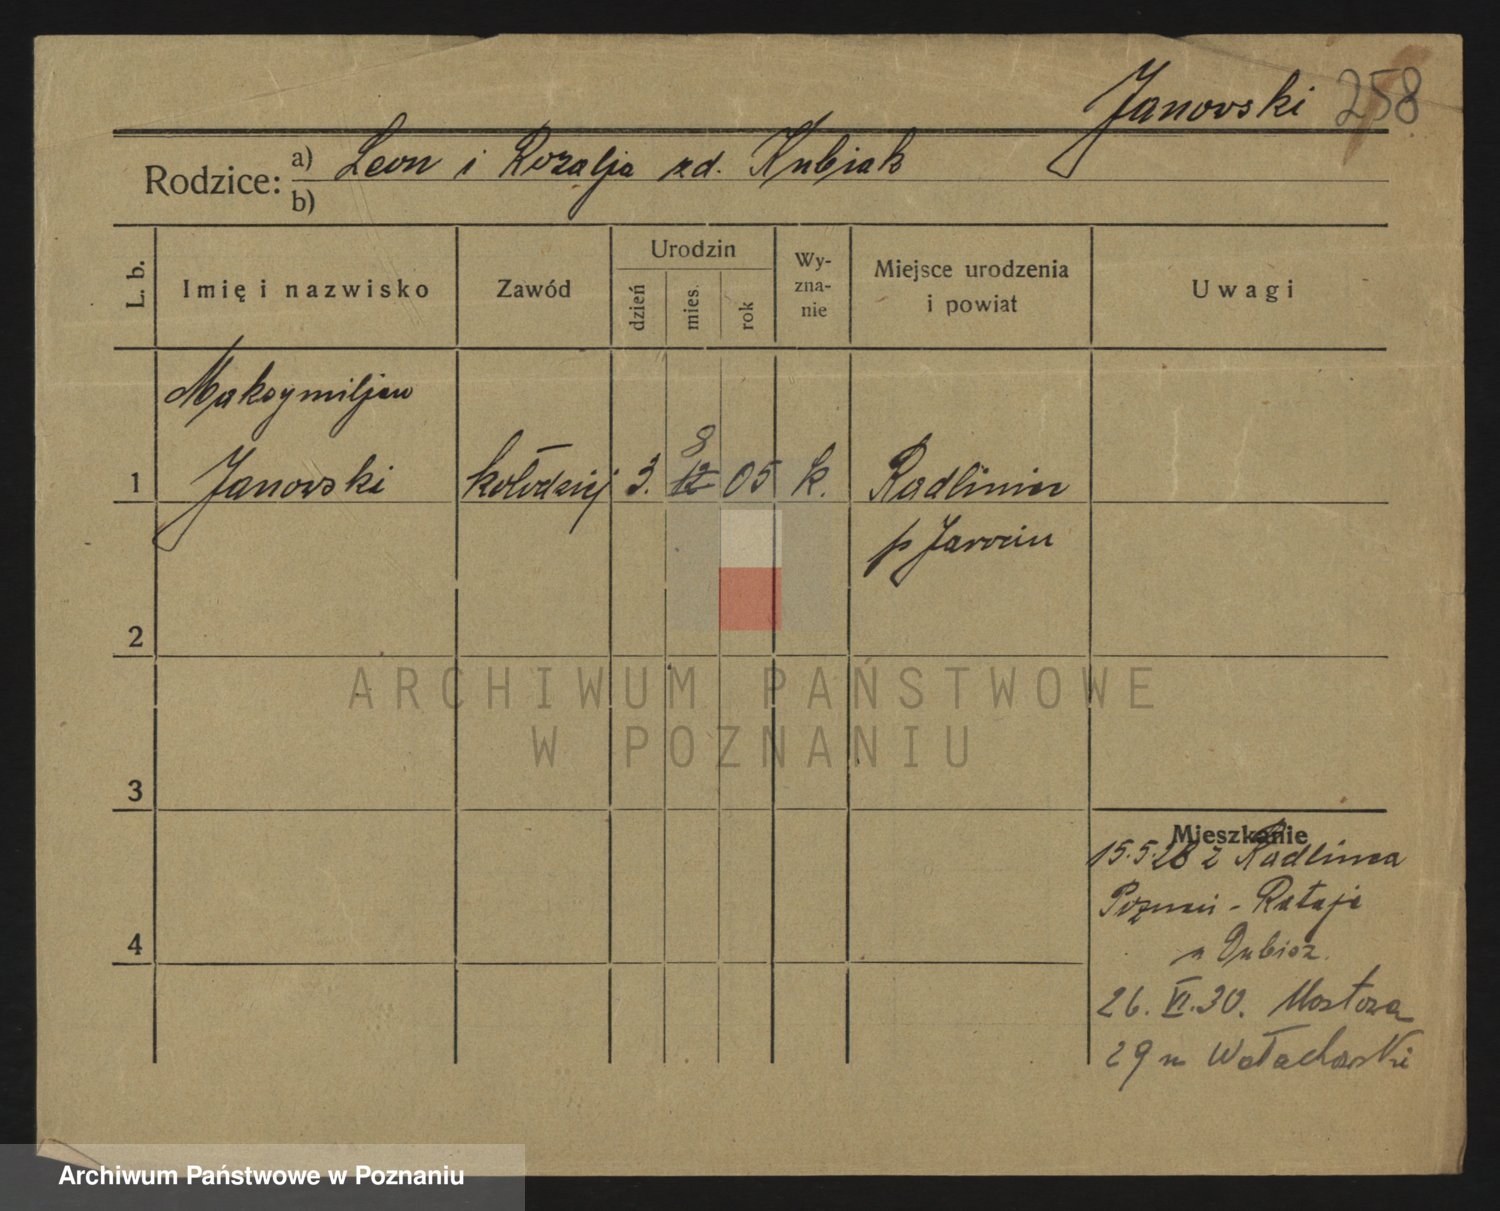 Janovski 258
Rodzice: a) Leon i Rozalja zd. Kubiak
b)
L. b. Imię i nazwisko Zawód Urodzin dzień mies. rok Wyznanie Miejsce urodzenia i powiat Uwagi
Maksymiljan
8
1 Janovski kołodziej 3. 12 05 k. Radlinia
p Jarocin
2
ARCHIWUM PAŃSTWOWE
W POZNANIU
3
Mieszkanie
15.5.28 z Radlinia
Poznań - Rataje
4
u Dubisz.
26. VI. 30. Mostowa
29 u
Archiwum Państwowe w Poznaniu